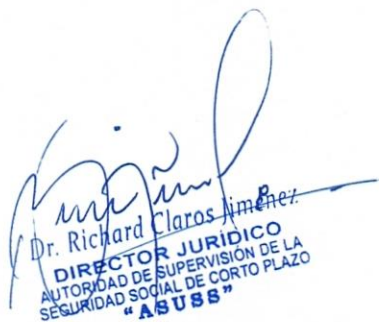 Dr. Richard Claros Jiménez
DIRECTOR JURÍDICO
AUTORIDAD DE SUPERVISIÓN DE LA
SEGURIDAD SOCIAL DE CORTO PLAZO
"ASUSS"